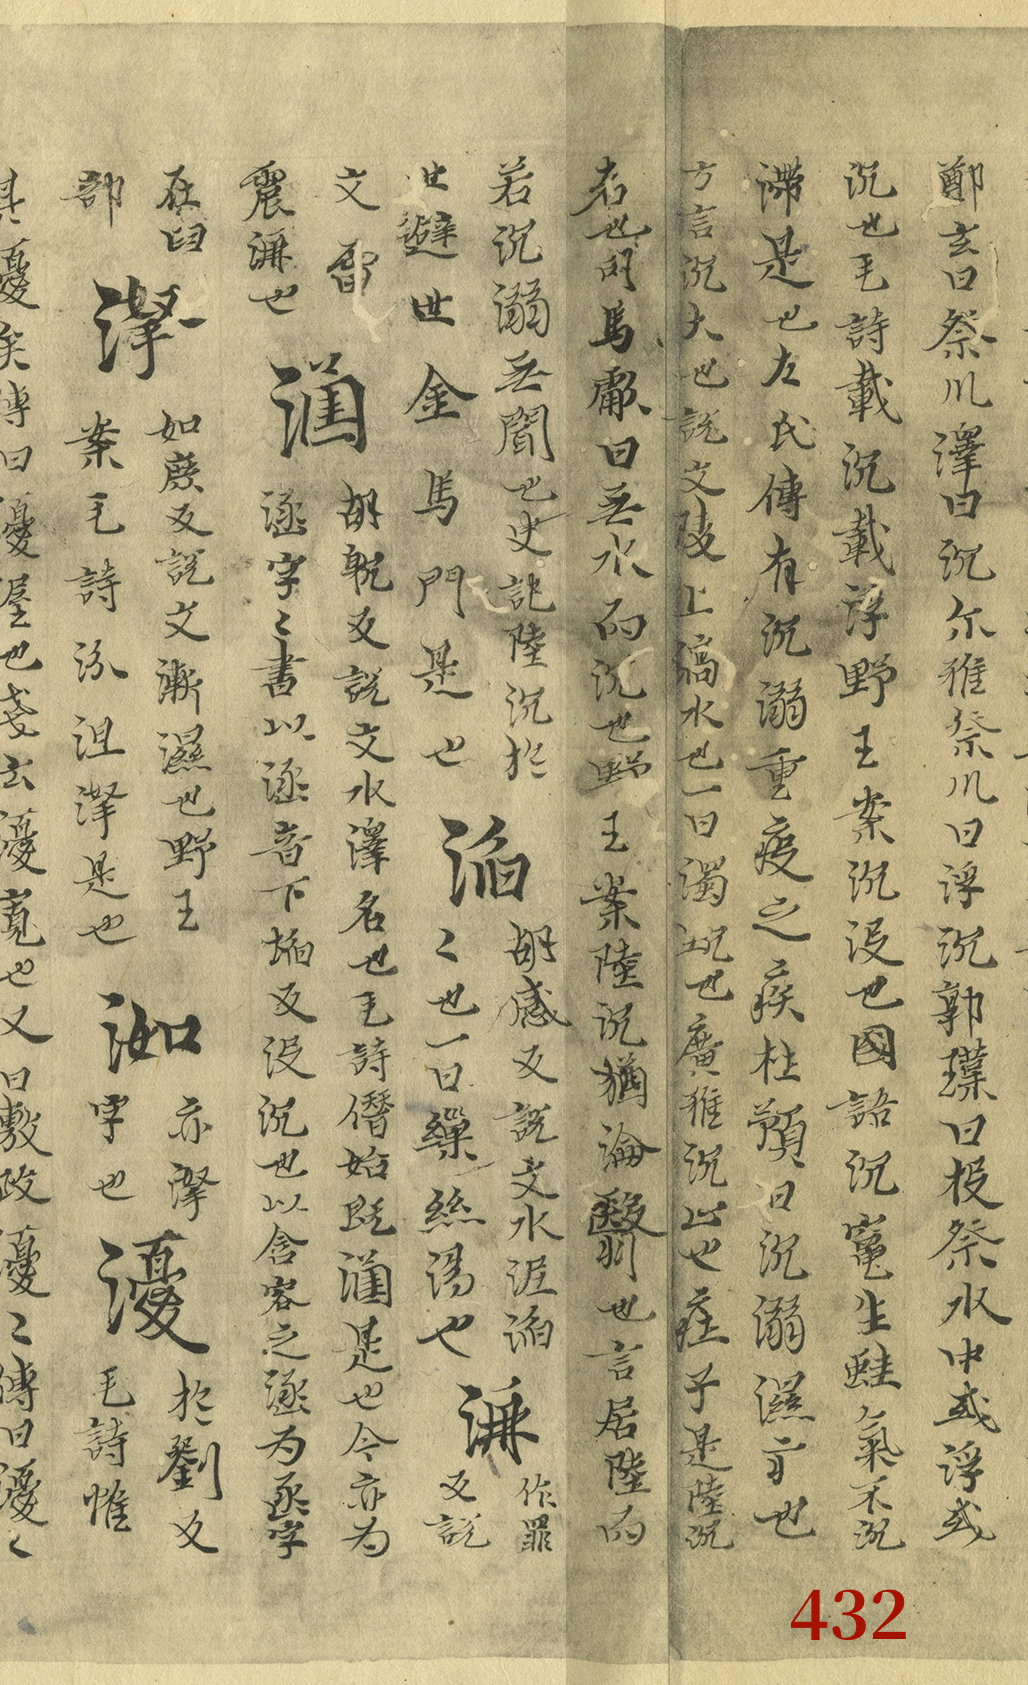 鄭玄曰祭川澤曰沉尒雅祭川曰浮沉郭璞曰投祭水中或浮或
沉也毛詩載沉載浮野王案沉没也國語沉竃生鼃氣不沉
滯是也左氏傳有沉溺重膇之疾杜預曰沉溺濕言也
方言沉大也説文陵上滈水也一曰濁沉也廣雅沉止也莊子是陸沉
者也司馬彪曰无水而沉也野王案陸沉猶淪翳也言居陸而
若沉溺无聞也史記陸沉於
世避世金馬門是也
洎 胡感反説文水涯洎
〻也一曰繅絲湯也
溓 作罪反説
文雷
震溓也
涵 胡躭反説文水澤名也毛詩僭始旣涵是也今亦为
逐字〻書以逐音下㙁反没沉也以含容之逐为函字
在臼
部
㵀 如蔗反説文漸濕也野王
案毛詩汾沮㵀是也
洳 亦㵀
字也
漫 於劉反
毛詩惟
其漫矣傳曰漫渥也戔云漫寬也又曰敷政漫〻傳曰漫〻
432